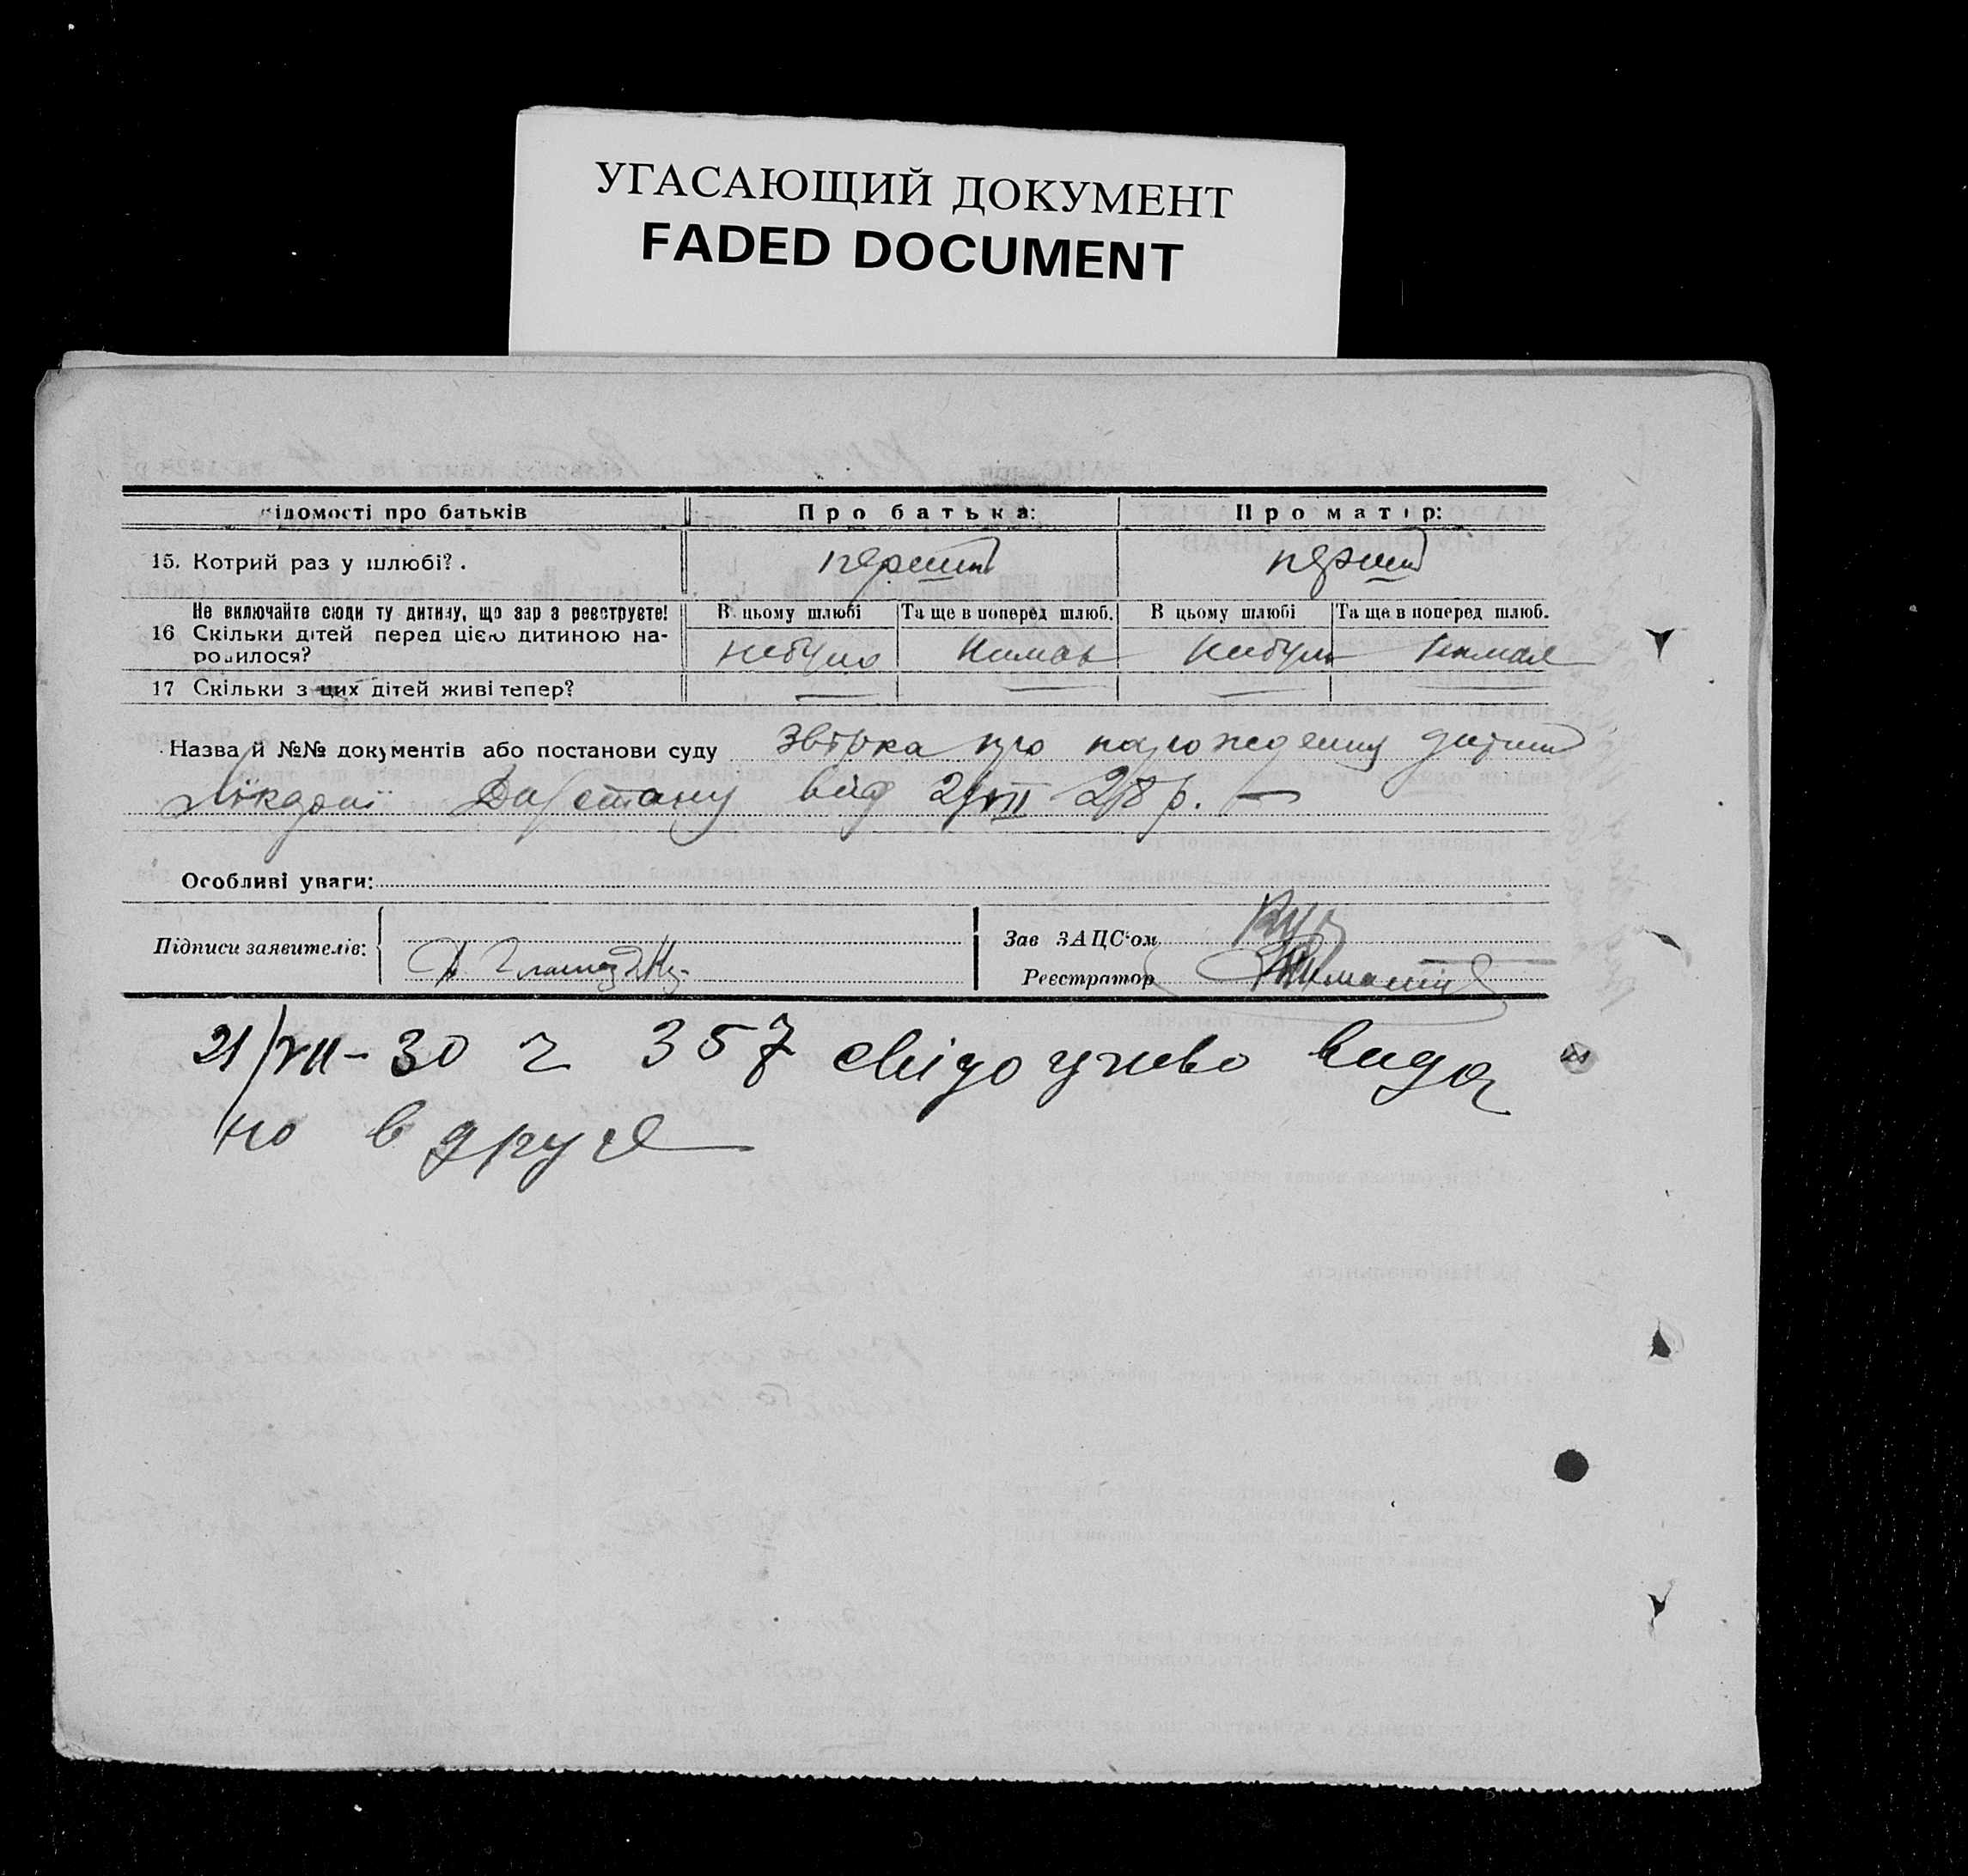 УГАСАЮЩИЙ ДОКУМЕНТ
FADED DOCUMENT
ідомості про батьків
Про батька:
Про матір:
15. Котрий раз у шлюбі?.
перший
перший
Не включайте сюди ту дитину, що зар з реєструєте!
16 Скільки дітей перед цією дитиною на-
родилося?
В цьому шлюбі
Та ще в поперед шлюб.
В цьому шлюбі
Та ще в поперед шлюб.
небуло
Немає
Небуло
Немає
17 Скільки з цих дітей живі тепер?
Назва й №№ документів або постанови суду
про дитини
від 28 р. —
Особливі уваги:
Підписи заявителів:
Зав ЗАЦС'ом
Реєстратор
21/VII-30 г 357 свідоцтво вида
но вдруге